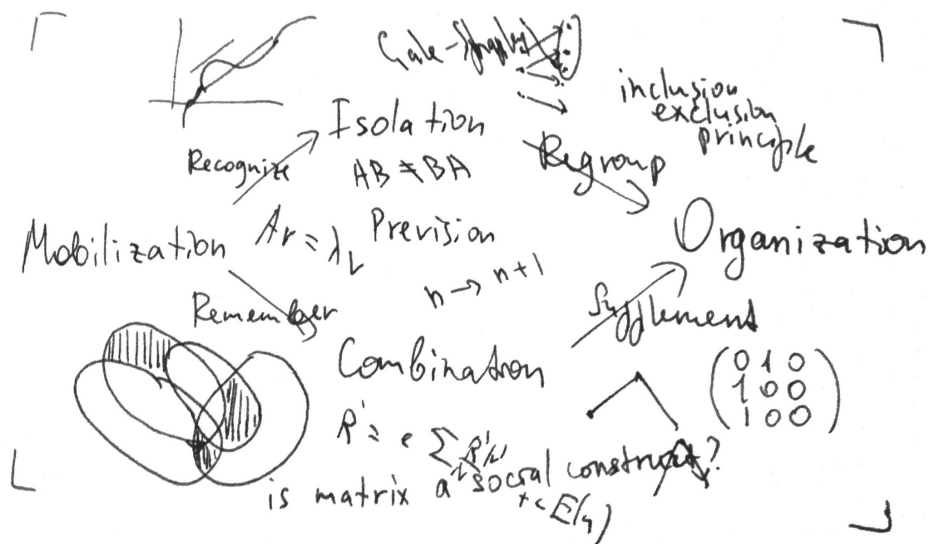 Gale-Shapley
inclusion
exclusion
principle
Isolation
Recognize
AB ≠ BA
Regroup
Mobilization
Av = λv
Prevision
Organization
n → n+1
Remember
Supplement
Combination
0 1 0
1 0 0
1 0 0
is matrix a social construct?